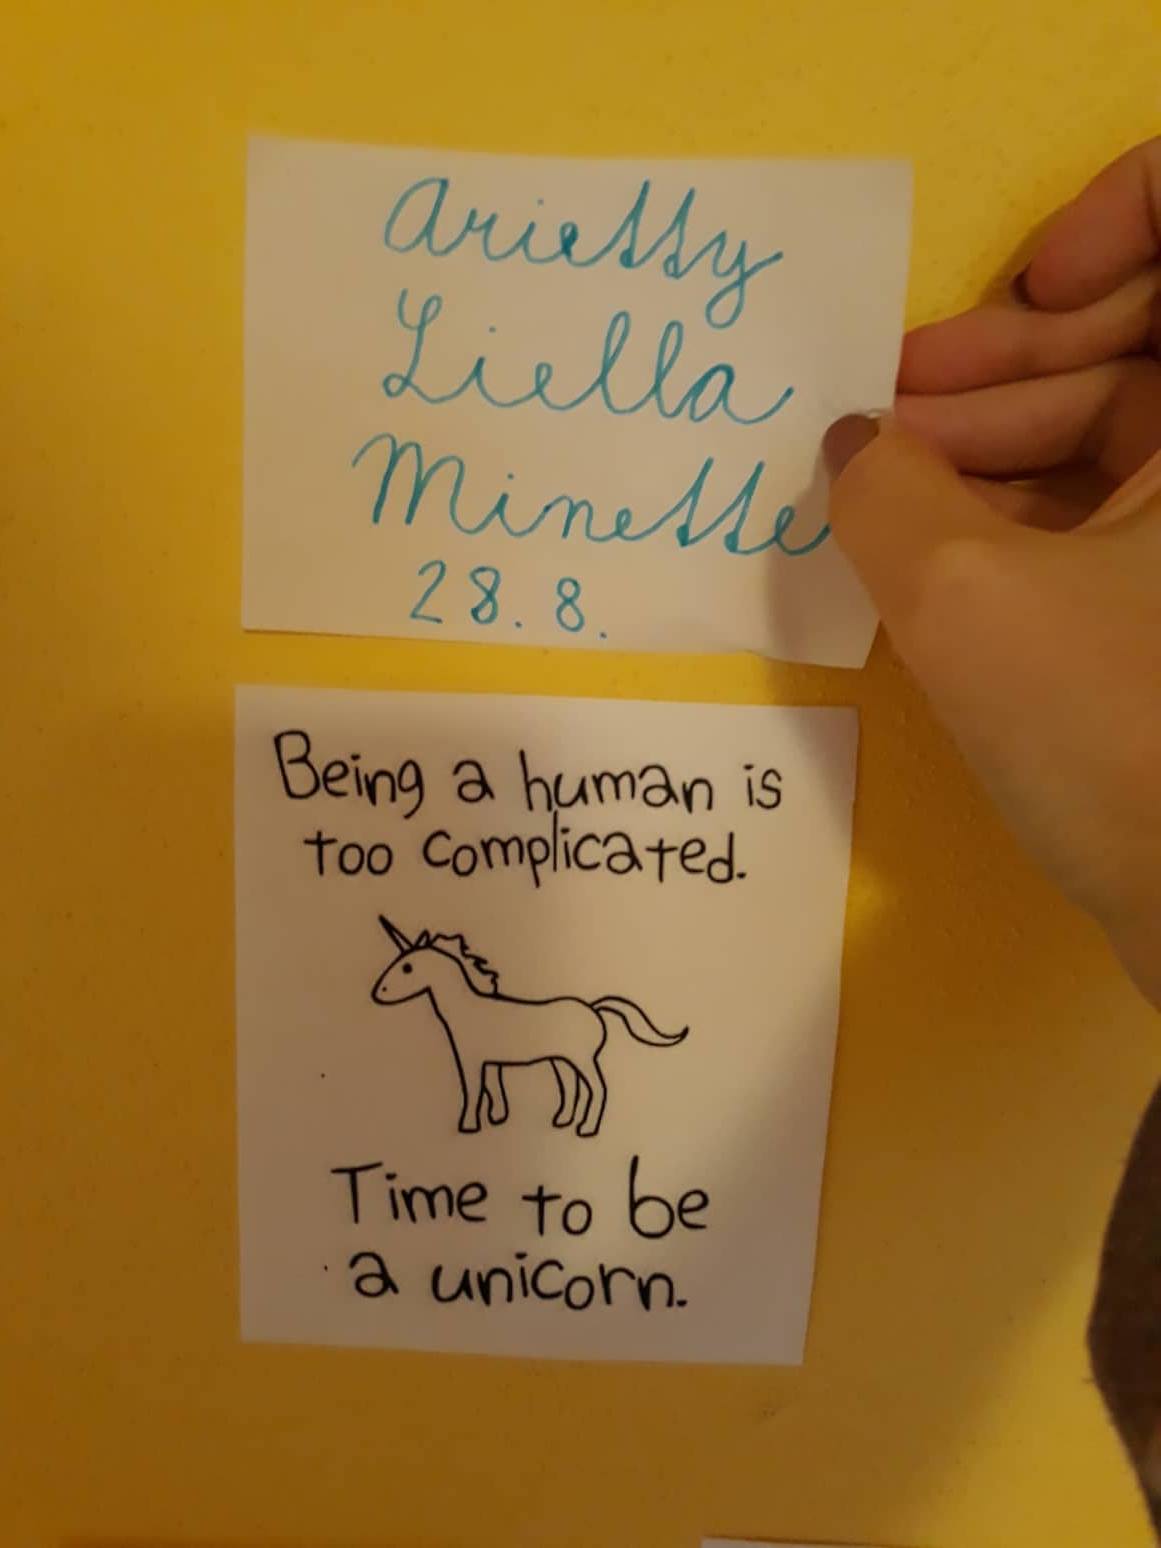 Arietty
Liella
Minette
28.8.
Being a human is
too complicated.
Time to be
a unicorn.